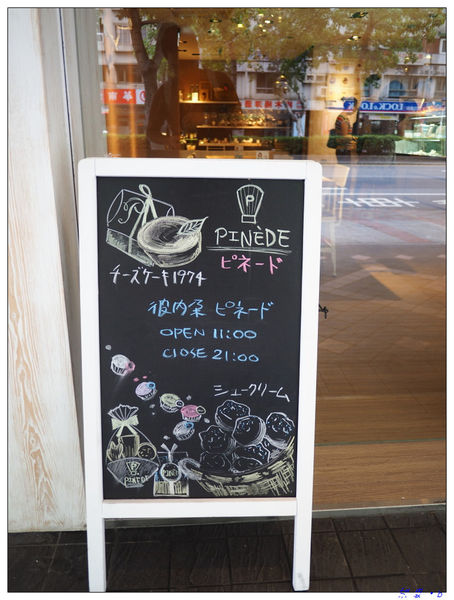 PINÈDE
ピネード
チーズケーキ1974
彼内朵 ピネード
OPEN 11:00
CLOSE 21:00
シュークリーム
LOCK&LOCK